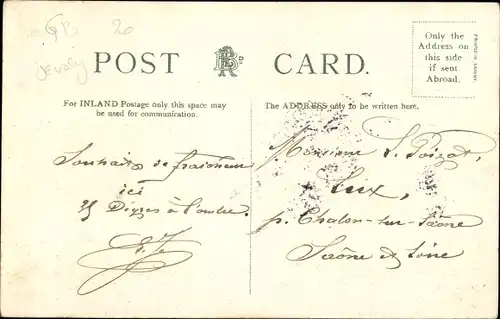 GB 20
POST CARD.
Only the
Address on
this side
if sent
Abroad.
For INLAND Postage only this space may
be used for communication.
The ADDRESS only to be written here.
Souhaits de fraîcheur
ici
35 Degrés à l'ombre.
Monsieur L. Poizat,
Lux,
p. Chalon-sur-Saône
Saône et Loire